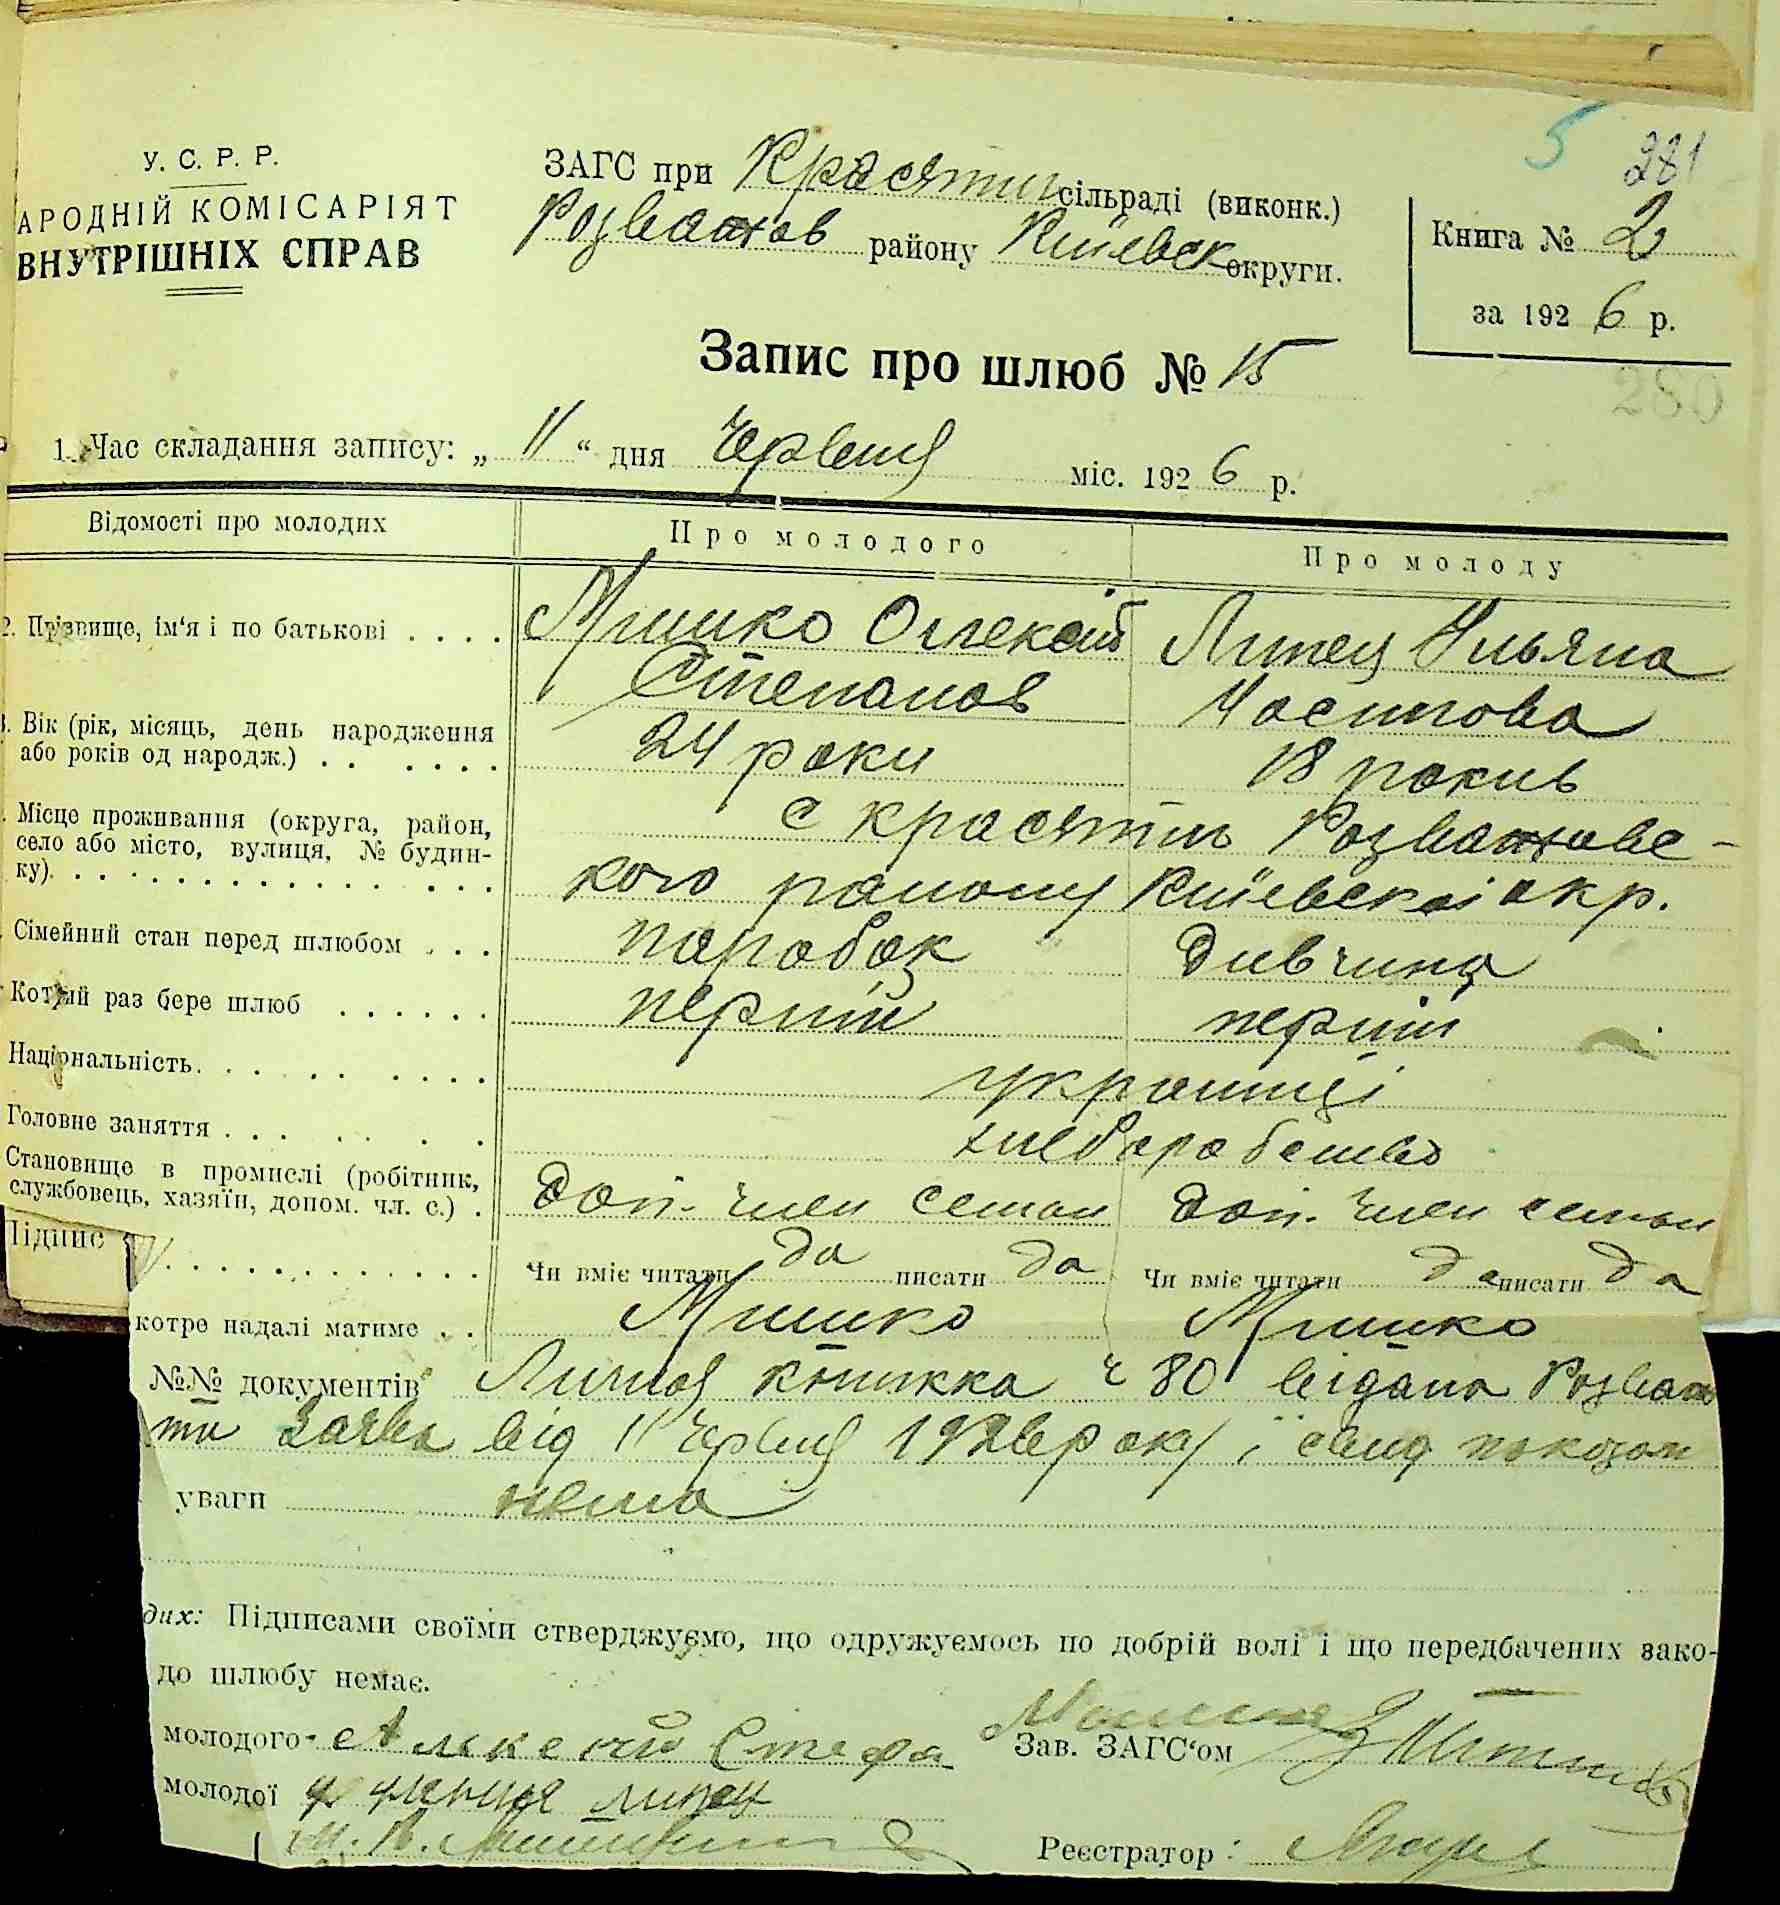 5 281
У. С. Р. Р.
АРОДНІЙ КОМІСАРІЯТ
ВНУТРІШНІХ СПРАВ
ЗАГС при Красятин сільраді (виконк.)
Розважов району Киівськ округи.
Книга № 2
за 1926 р.
Запис про шлюб № 15
280
1. Час складання запису: „ 11 “ дня Червня міс. 1926 р.
Відомості про молодих Про молодого Про молоду
2. Прізвище, ім'я і по батькові . . . . Мишко Олексій Липец Ульяна
Степанов Йосипова
Вік (рік, місяць, день народження 24 роки 18 рокив
або років од народж.) . . . . . .
Місце проживання (округа, район, с Красятин Розважовс-
село або місто, вулиця, № будин-
ку). . . . кого району Київськоі окр.
Сімейний стан перед шлюбом . . . паробок дивчина
Котрий раз бере шлюб . . . . . . перший перший
Національність. . . . . . . . українці
Головне заняття . . . . . . хлеборобство
Становище в промислі (робітник,
службовець, хазяїн, допом. чл. с.) . доп. член семьи доп. член семьи
Підпис . . . . Чи вміє читати да писати да Чи вміє читати да писати да
котре надалі матиме . . Мишко Мишко
№№ документів Лична книжка ч 80 видана Розваж
заява від 11 червня 1926 року і свид показан
уваги нема
дих: Підписами своїми стверджуємо, що одружуємось по добрій волі і що передбачених зако-
до шлюбу немає.
молодого Алексий Стефа
Зав. ЗАГС'ом
молодої липец
Реєстратор: